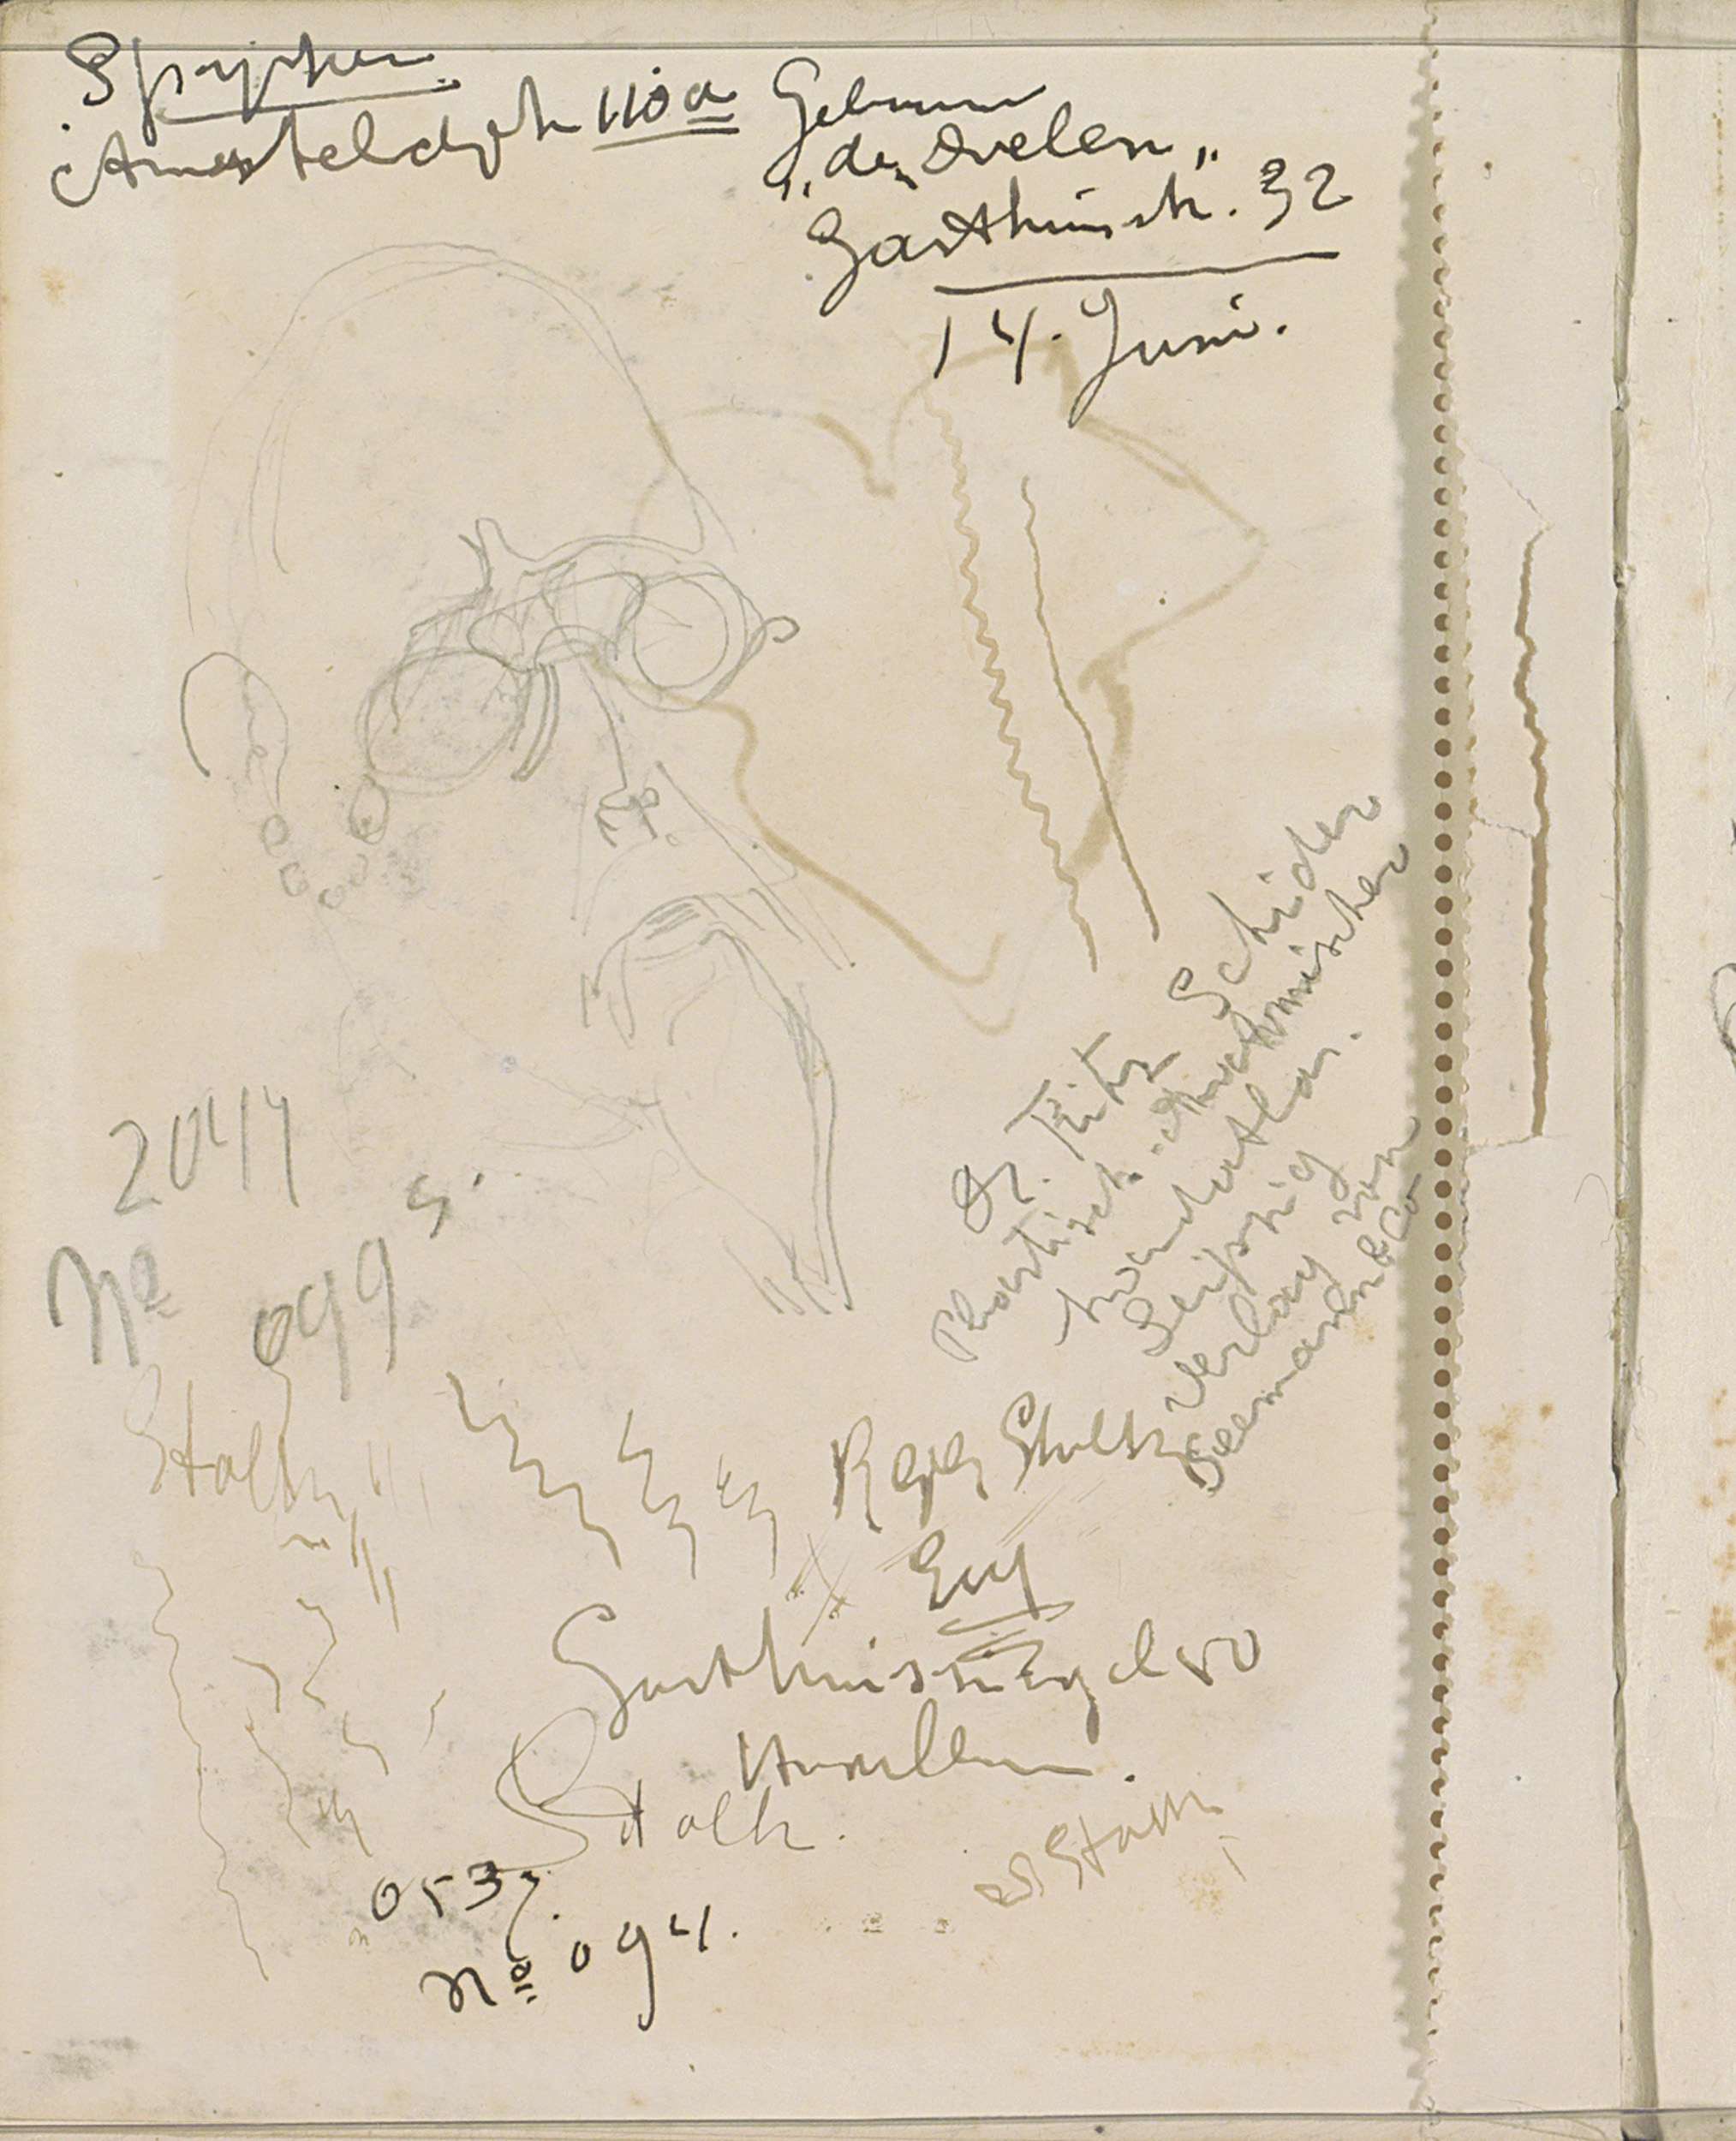 Spyker
Amsteldyk 110a
Gebouw
"de Doelen"
Gasthuisstr. 32
14. Juni.
Dr. Fritz Schider
Plastisch-Anatomischer
Handatlas.
Leipzig
Verlag von
Seemann & Co
2044
No 099 S.
Stolk
Gasthuissingel 50
Haarlem.
Stolk.
053
No 094.